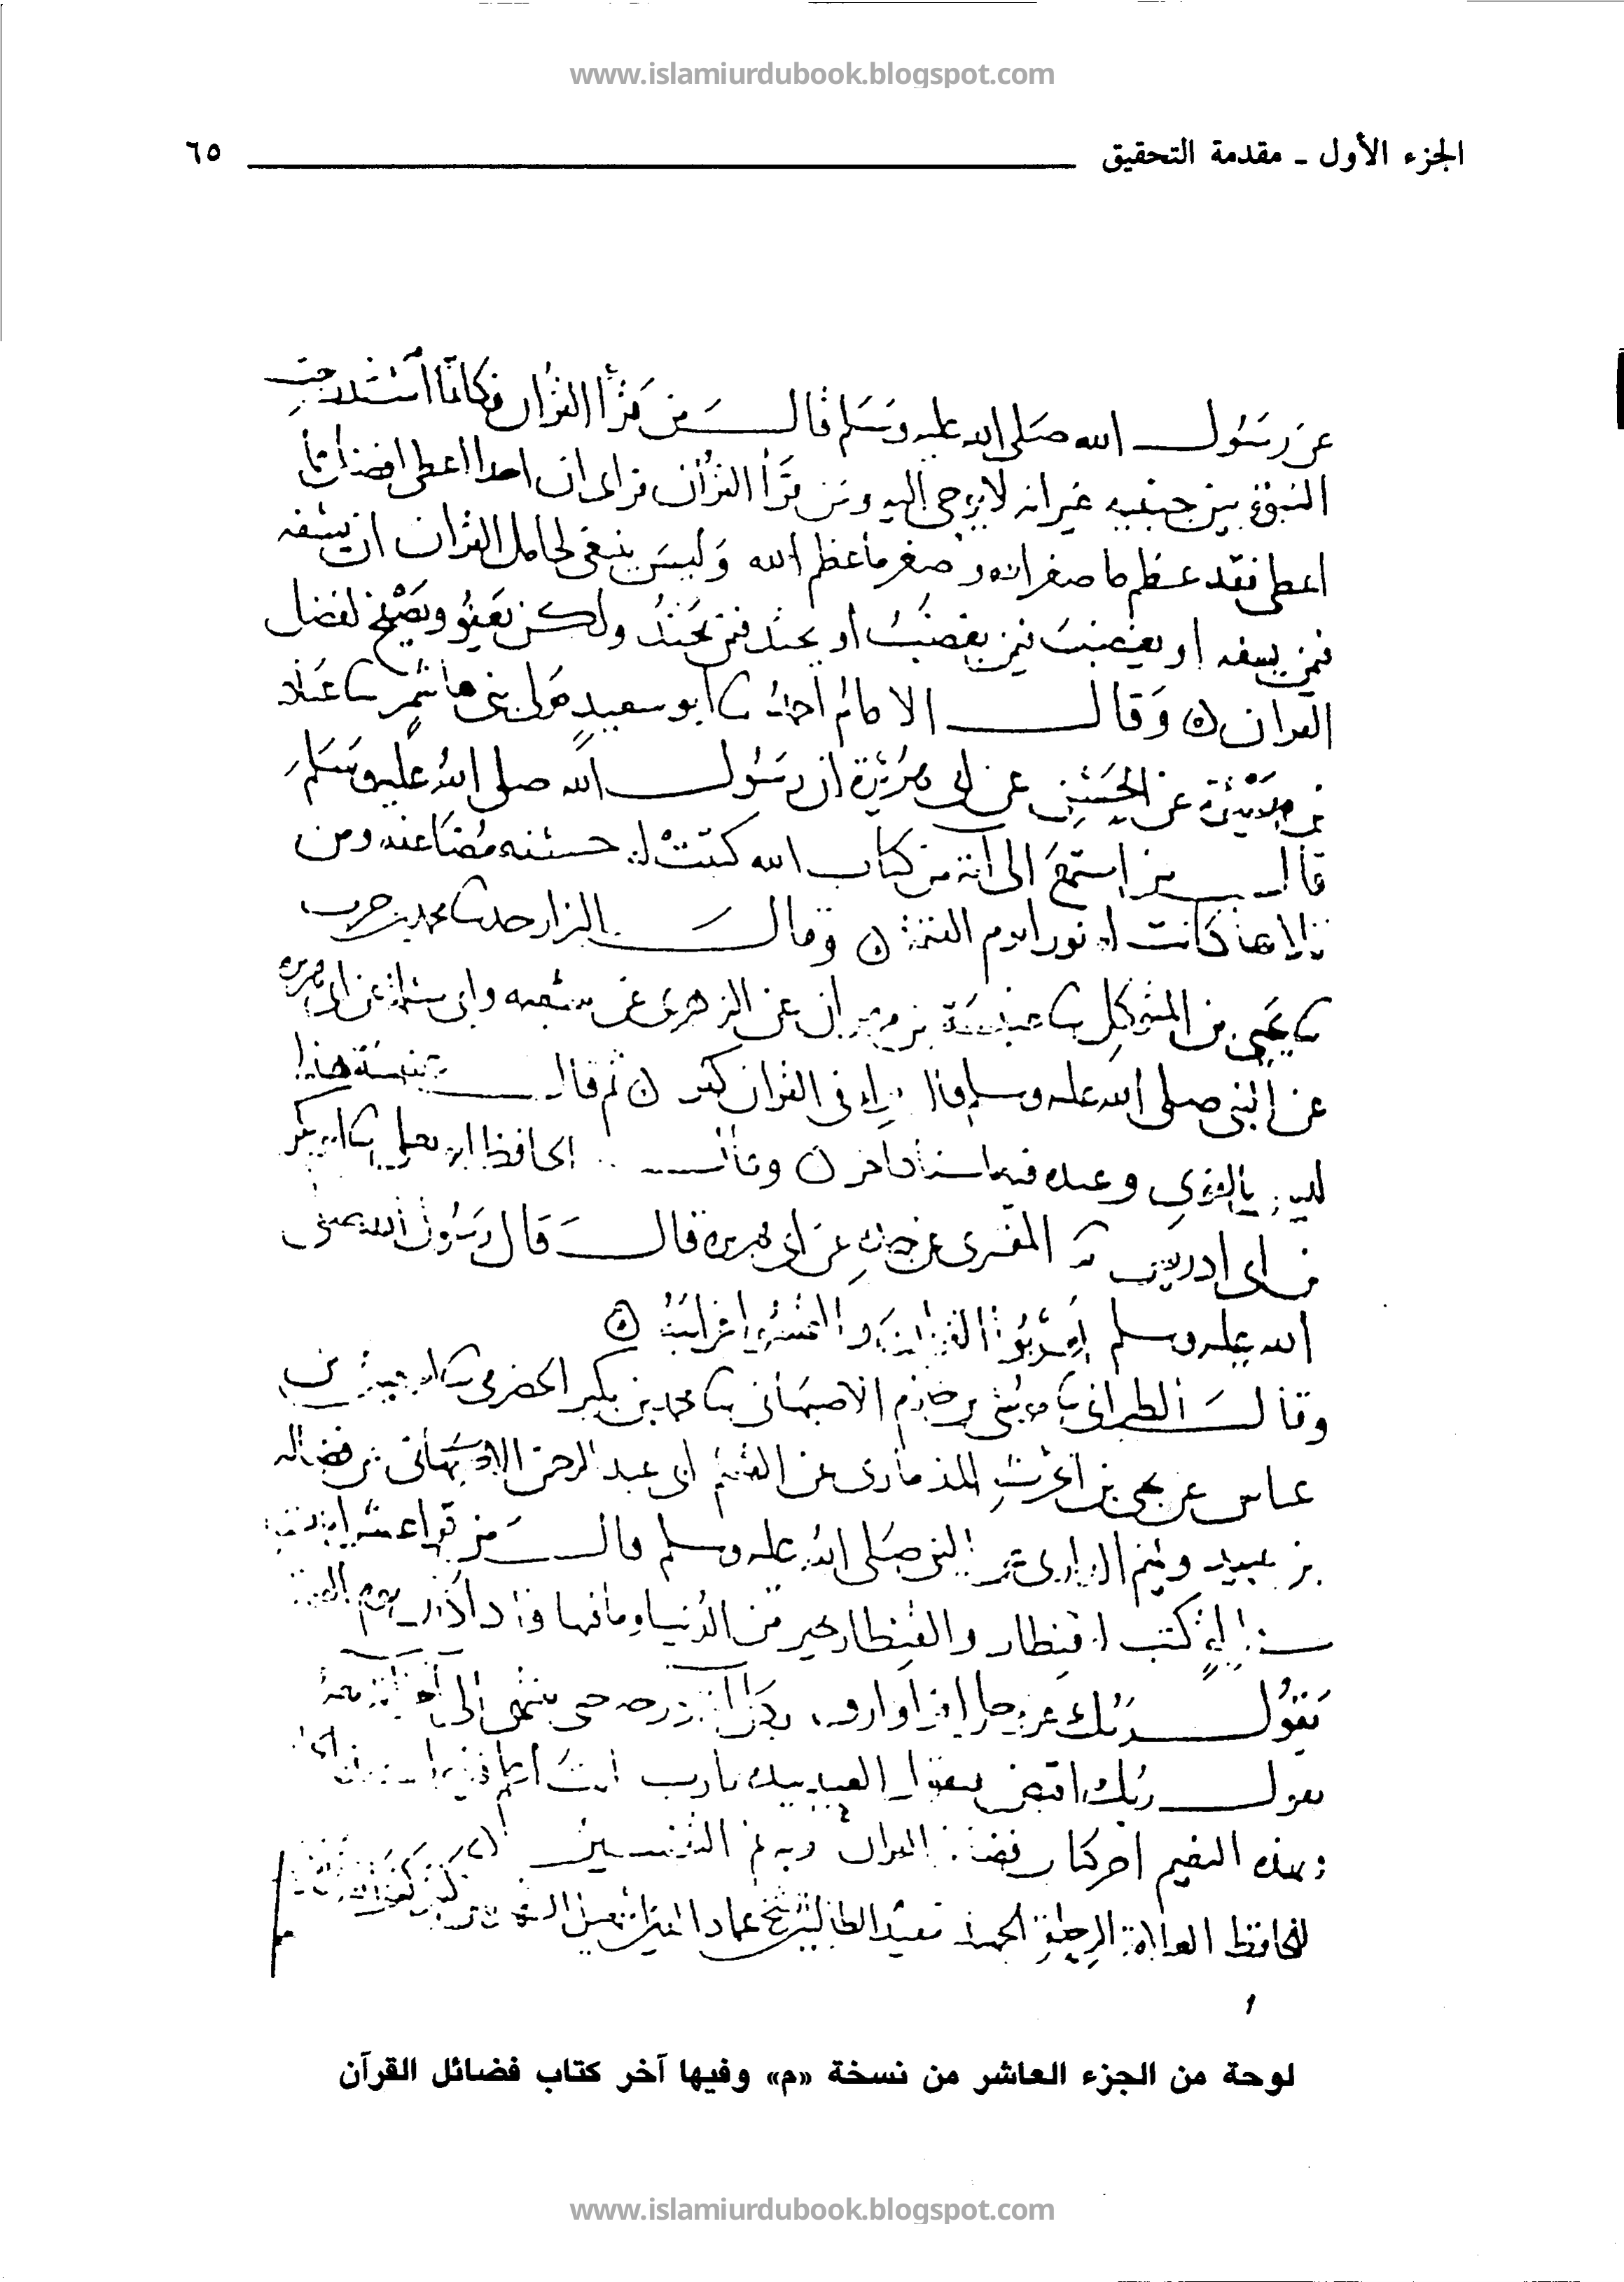 www.islamiurdubook.blogspot.com
الجزء الأول - مقدمة التحقيق ٦٥
عن رسول الله صلى الله عليه وسلم قال من قرأ القرآن فكأنما استدرجت
النبوة بين جنبيه غير انه لا يوحى اليه ومن قرأ القرآن فراى ان احدا اعطى افضل مما
اعطى فقد عظم ما صغر الله وصغر ما عظم الله وليس ينبغي لحامل القران ان يسفه
فيمن يسفه او يغضب فيمن يغضب او يحتد فيمن يحتد ولكن يعفو ويصفح لفضل
القران وقال الامام احمد ثنا ابو سعيد مولى بني هاشم ثنا عباد
بن ميسرة عن الحسن عن ابي هريرة ان رسول الله صلى الله عليه وسلم
قال من استمع الى آية من كتاب الله كتبت له حسنة مضاعفة ومن
تلاها كانت له نورا يوم القيمة وقال البزار حدثنا محمد بن حرب
ثنا يحيى بن المتوكل ثنا عنبسة بن مهران عن الزهري عن سعيد وابي سلمة عن ابي هريرة
عن النبي صلى الله عليه وسلم قال مراء في القران كفر ثم قال عنبسة هذا
ليس بالقوي وعنده فيه اسناد اخر وقال الحافظ ابو يعلى ثنا ابو بكر
بن ابي ادريس ثنا المقبري عن جده عن ابي هريرة قال قال رسول الله صلى
الله عليه وسلم اعربوا القران والتمسوا غرائبه
وقال الطبراني ثنا موسى بن حازم الاصبهاني ثنا محمد بن بكير الحضرمي ثنا اسمعيل بن
عياش عن يحيى بن الحرث الذماري عن القسم ابي عبد الرحمن عن فضالة
بن عبيد وتميم الداري عن النبي صلى الله عليه وسلم قال من قرا عشر ايات في
ليلة كتب له قنطار والقنطار خير من الدنيا وما فيها فاذا كان يوم القيمة
يقول ربك عز وجل اقرا وارق بكل اية درجة حتى ينتهى الى اخر اية معه
يقول ربك اقبض فيقول العبد بيده يا رب انت اعلم فيقول
بهذه النعيم اخر كتاب فضائل القران وبه تم التفسير
للحافظ العلامة الرحلة الجهبذ مفيد الطالبين الشيخ عماد الدين اسمعيل الشهير بابن كثير
لوحة من الجزء العاشر من نسخة «م» وفيها آخر كتاب فضائل القرآن
www.islamiurdubook.blogspot.com